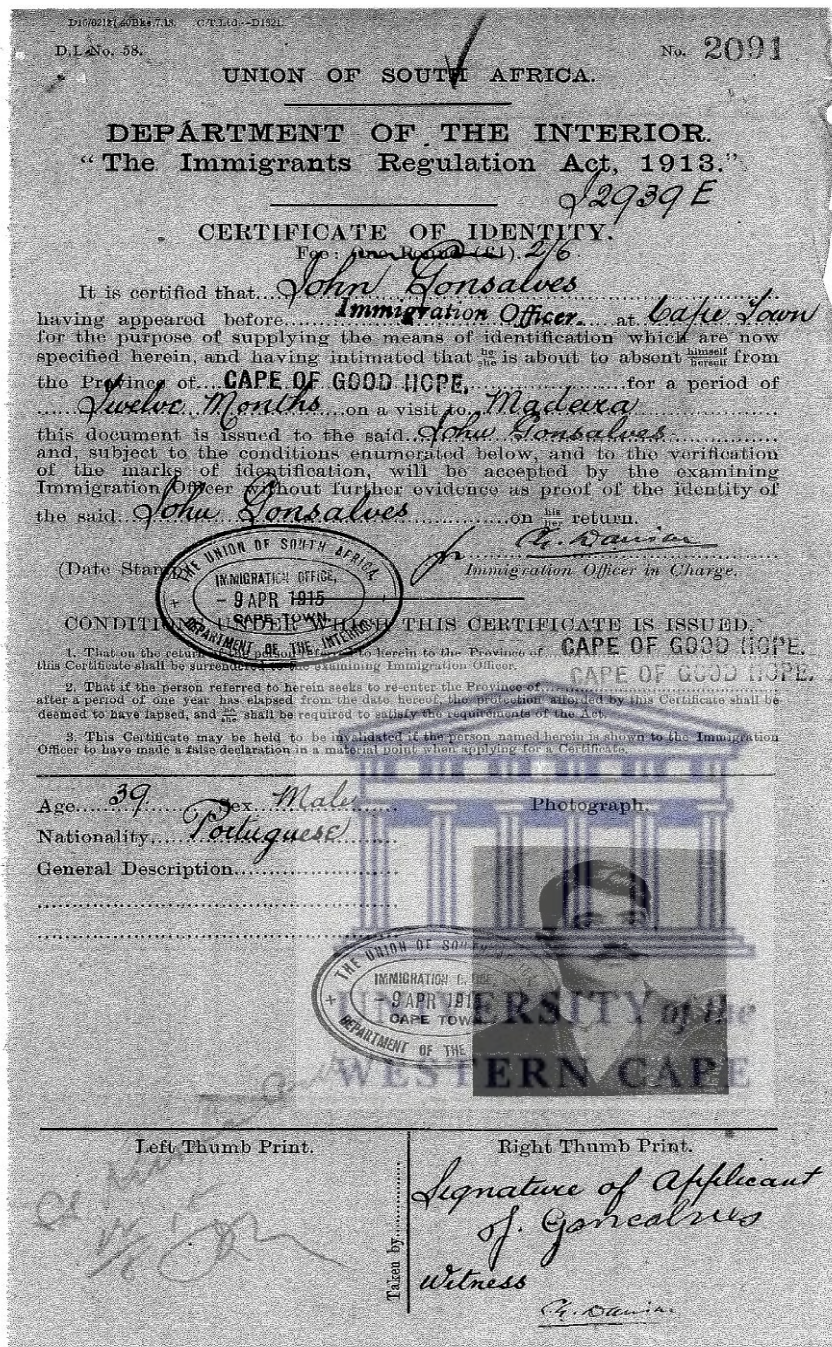 D.I. No. 58.
No. 2091
UNION OF SOUTH AFRICA.
DEPARTMENT OF THE INTERIOR.
"The Immigrants Regulation Act, 1913."
2939 E
CERTIFICATE OF IDENTITY.
Fee: One Pound (£1). 2/6
It is certified that John Gonsalves
having appeared before Immigration Officer. at Cape Town
for the purpose of supplying the means of identification which are now
specified herein, and having intimated that he/she is about to absent himself/herself from
the Province of CAPE OF GOOD HOPE, for a period of
Twelve Months on a visit to Madeira
this document is issued to the said John Gonsalves
and, subject to the conditions enumerated below, and to the verification
of the marks of identification, will be accepted by the examining
Immigration Officer without further evidence as proof of the identity of
the said John Gonsalves on his/her return.
for
(Date Stamp)
Immigration Officer in Charge.
THE UNION OF SOUTH AFRICA,
IMMIGRATION OFFICE,
- 9 APR 1915
CAPE TOWN
DEPARTMENT OF THE INTERIOR
CONDITIONS UNDER WHICH THIS CERTIFICATE IS ISSUED.
1. That on the return of the person referred to herein to the Province of CAPE OF GOOD HOPE.
this Certificate shall be surrendered to the examining Immigration Officer.
CAPE OF GOOD HOPE.
2. That if the person referred to herein seeks to re-enter the Province of
after a period of one year has elapsed from the date hereof, the protection afforded by this Certificate shall be
deemed to have lapsed, and he/she shall be required to satisfy the requirements of the Act.
3. This Certificate may be held to be invalidated if the person named herein is shown to the Immigration
Officer to have made a false declaration in a material point when applying for a Certificate.
Age 39 Sex Male
Photograph.
Nationality Portuguese
General Description
THE UNION OF SOUTH
IMMIGRATION
- 9 APR 191
CAPE TOWN
DEPARTMENT OF THE
UNIVERSITY of the
WESTERN CAPE
Left Thumb Print.
Right Thumb Print.
Taken by
Signature of Applicant
J. Goncalves
Witness